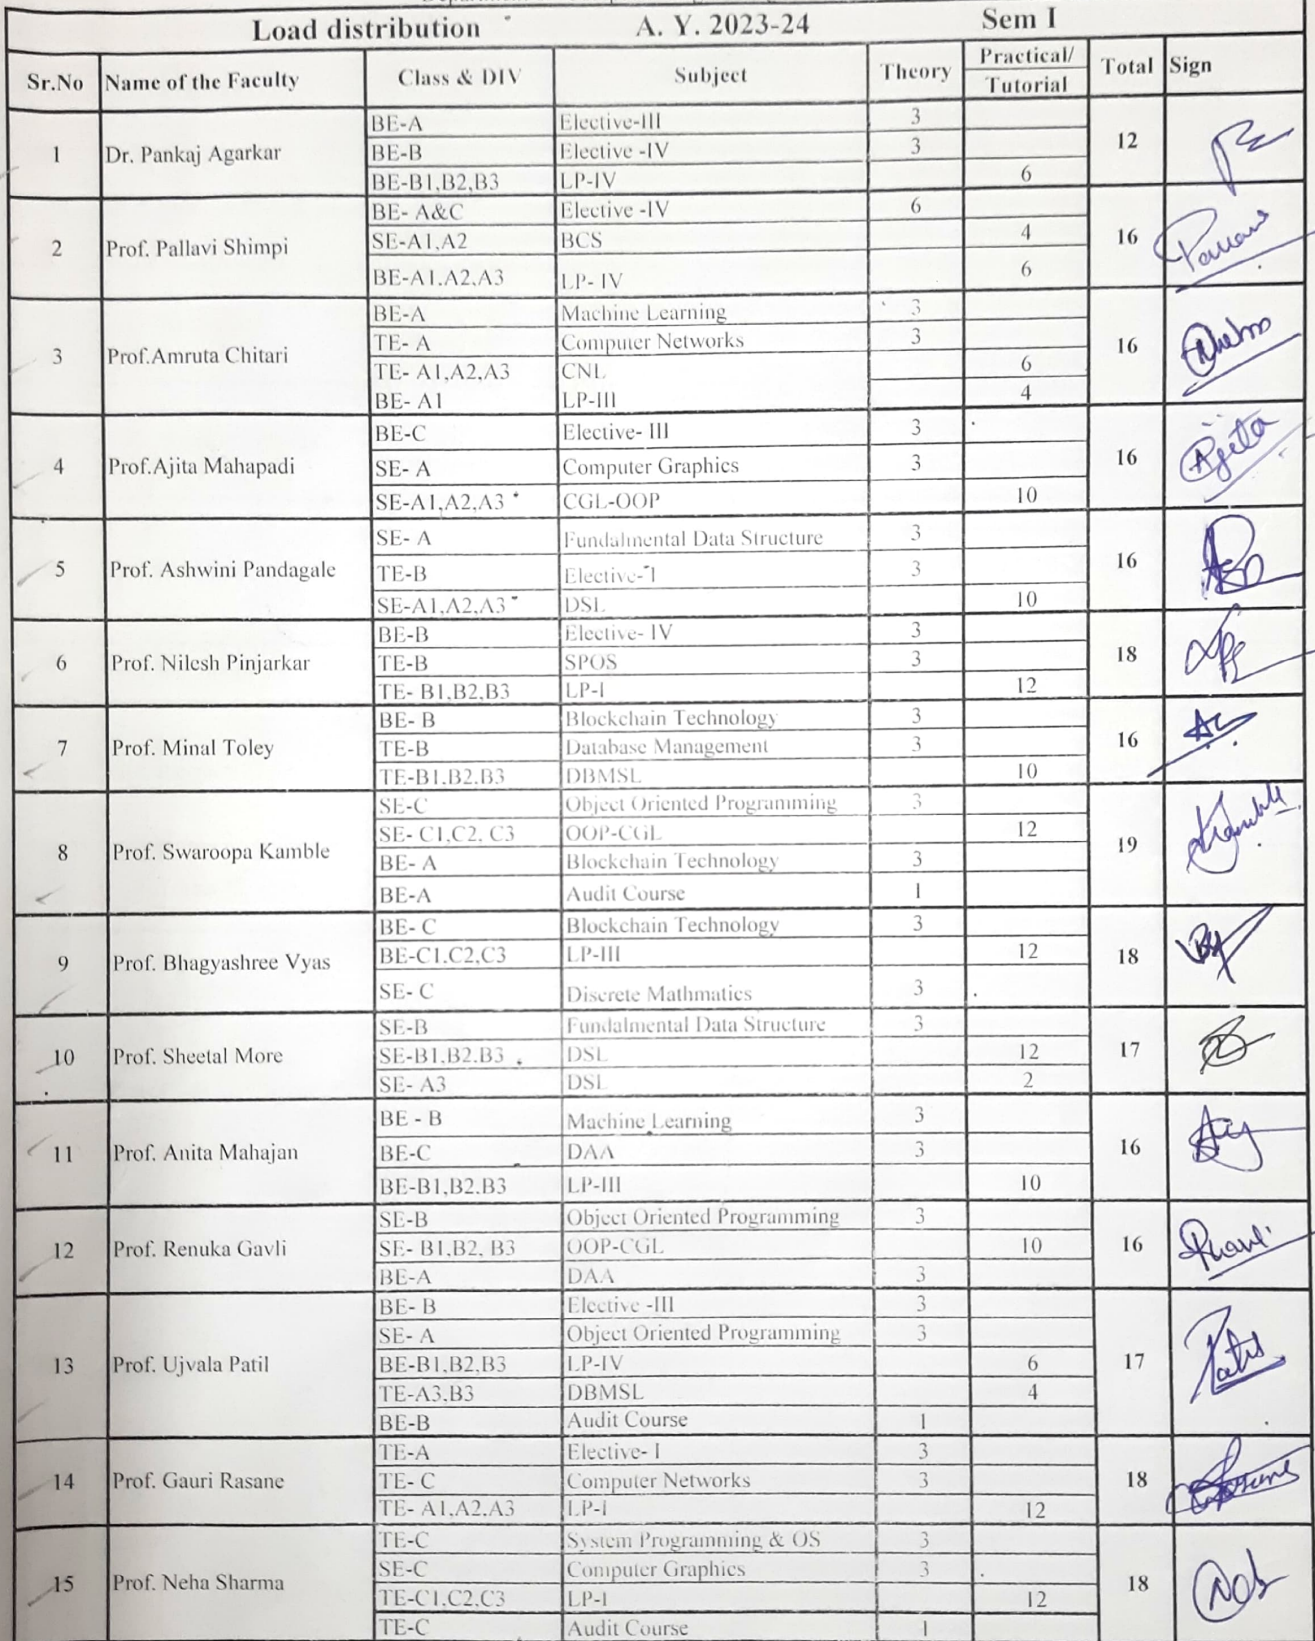 Load distribution A. Y. 2023-24 Sem I
Sr.No Name of the Faculty Class & DIV Subject Theory Practical/ Tutorial Total Sign
1 Dr. Pankaj Agarkar 12
BE-A Elective-III 3
BE-B Elective -IV 3
BE-B1,B2,B3 LP-IV 6
2 Prof. Pallavi Shimpi 16
BE- A&C Elective -IV 6
SE-A1,A2 BCS 4
BE-A1.A2,A3 LP- IV 6
3 Prof.Amruta Chitari 16
BE-A Machine Learning 3
TE- A Computer Networks 3
TE- A1,A2,A3 CNL 6
BE- A1 LP-III 4
4 Prof.Ajita Mahapadi 16 Ajita
BE-C Elective- III 3
SE- A Computer Graphics 3
SE-A1,A2,A3 CGL-OOP 10
5 Prof. Ashwini Pandagale 16
SE- A Fundalmental Data Structure 3
TE-B Elective-I 3
SE-A1,A2,A3 DSL 10
6 Prof. Nilesh Pinjarkar 18
BE-B Elective- IV 3
TE-B SPOS 3
TE- B1,B2,B3 LP-I 12
7 Prof. Minal Toley 16
BE- B Blockchain Technology 3
TE-B Database Management 3
TE-B1.B2.B3 DBMSL 10
8 Prof. Swaroopa Kamble 19
SE-C Object Oriented Programming 3
SE- C1,C2. C3 OOP-CGL 12
BE- A Blockchain Technology 3
BE-A Audit Course 1
9 Prof. Bhagyashree Vyas 18
BE- C Blockchain Technology 3
BE-C1.C2,C3 LP-III 12
SE- C Discrete Mathmatics 3
10 Prof. Sheetal More 17
SE-B Fundalmental Data Structure 3
SE-B1.B2.B3 DSL 12
SE- A3 DSL 2
11 Prof. Anita Mahajan 16
BE - B Machine Learning 3
BE-C DAA 3
BE-B1,B2.B3 LP-III 10
12 Prof. Renuka Gavli 16
SE-B Object Oriented Programming 3
SE- B1,B2, B3 OOP-CGL 10
BE-A DAA 3
13 Prof. Ujvala Patil 17
BE- B Elective -III 3
SE- A Object Oriented Programming 3
BE-B1,B2,B3 LP-IV 6
TE-A3,B3 DBMSL 4
BE-B Audit Course 1
14 Prof. Gauri Rasane 18
TE-A Elective- I 3
TE- C Computer Networks 3
TE- A1,A2.A3 LP-I 12
15 Prof. Neha Sharma 18
TE-C System Programming & OS 3
SE-C Computer Graphics 3
TE-C1.C2,C3 LP-I 12
TE-C Audit Course 1